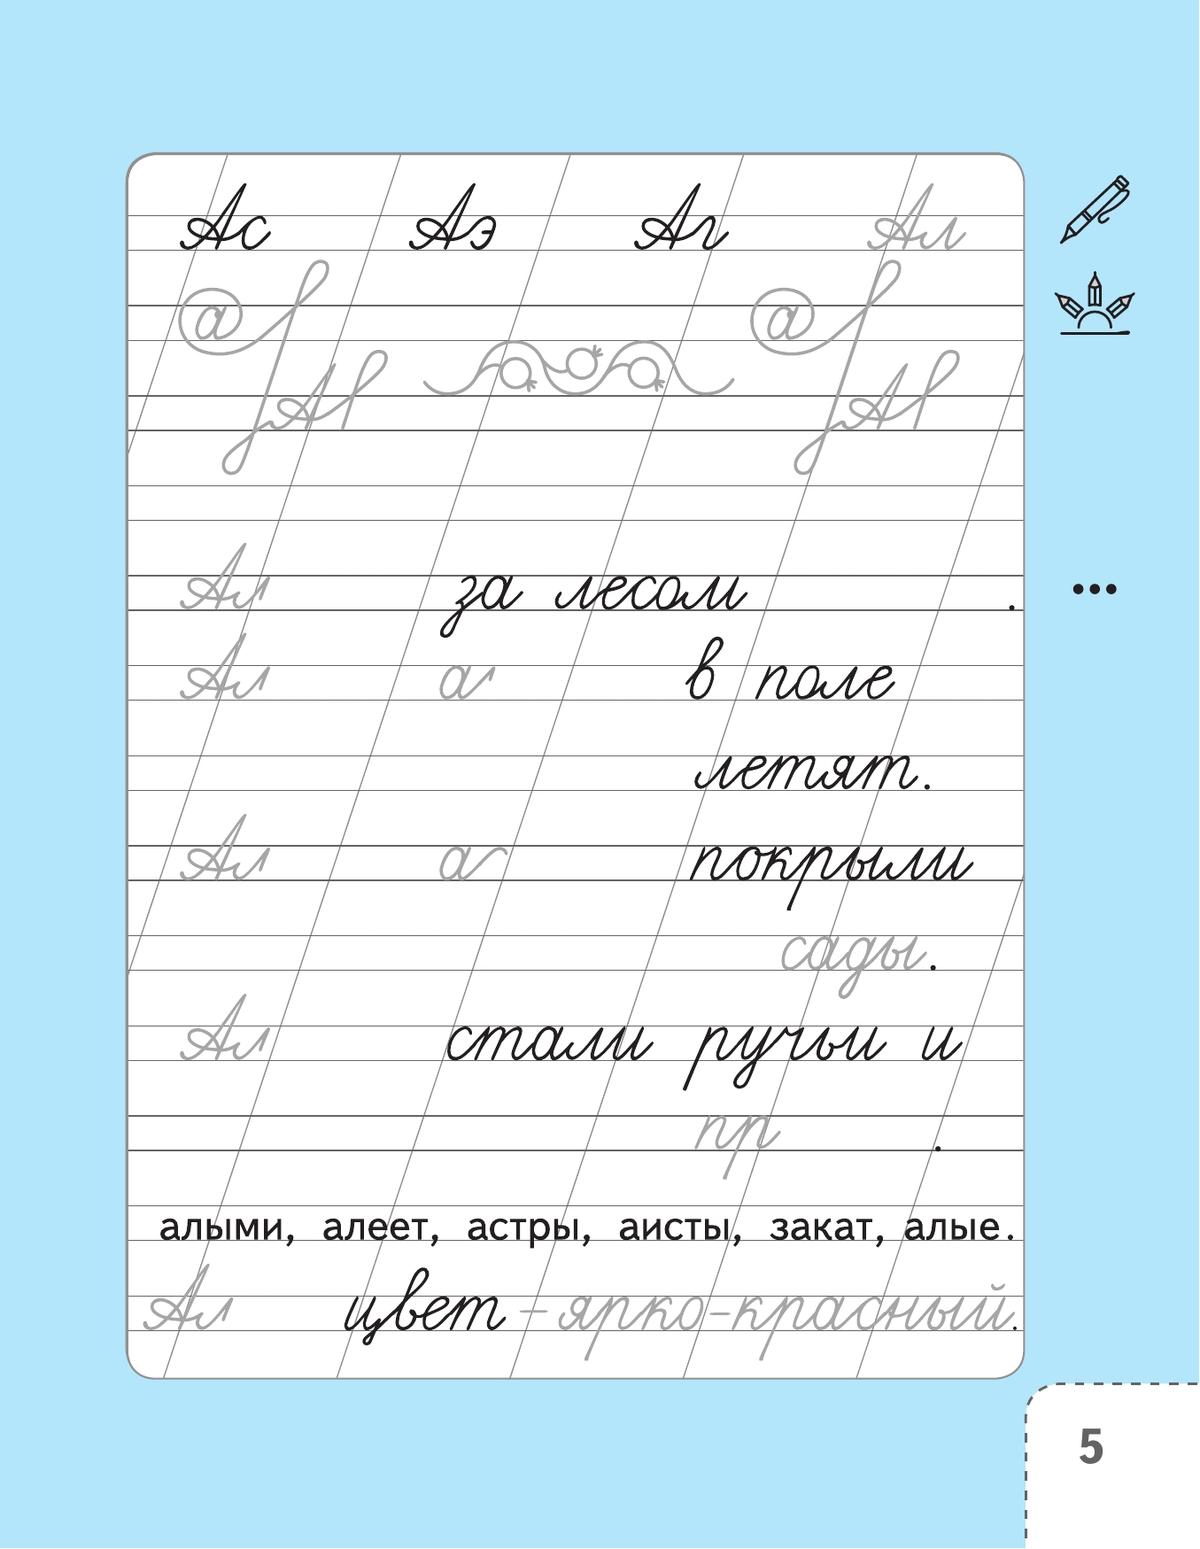 Ас Аэ Аг Ал
а а
АЛ АЛ
Ал за лесом .
Ал а в поле
летят.
Ал а покрыли
сады.
Ал стали ручьи и
пр .
алыми, алеет, астры, аисты, закат, алые.
Ал цвет – ярко-красный.
5